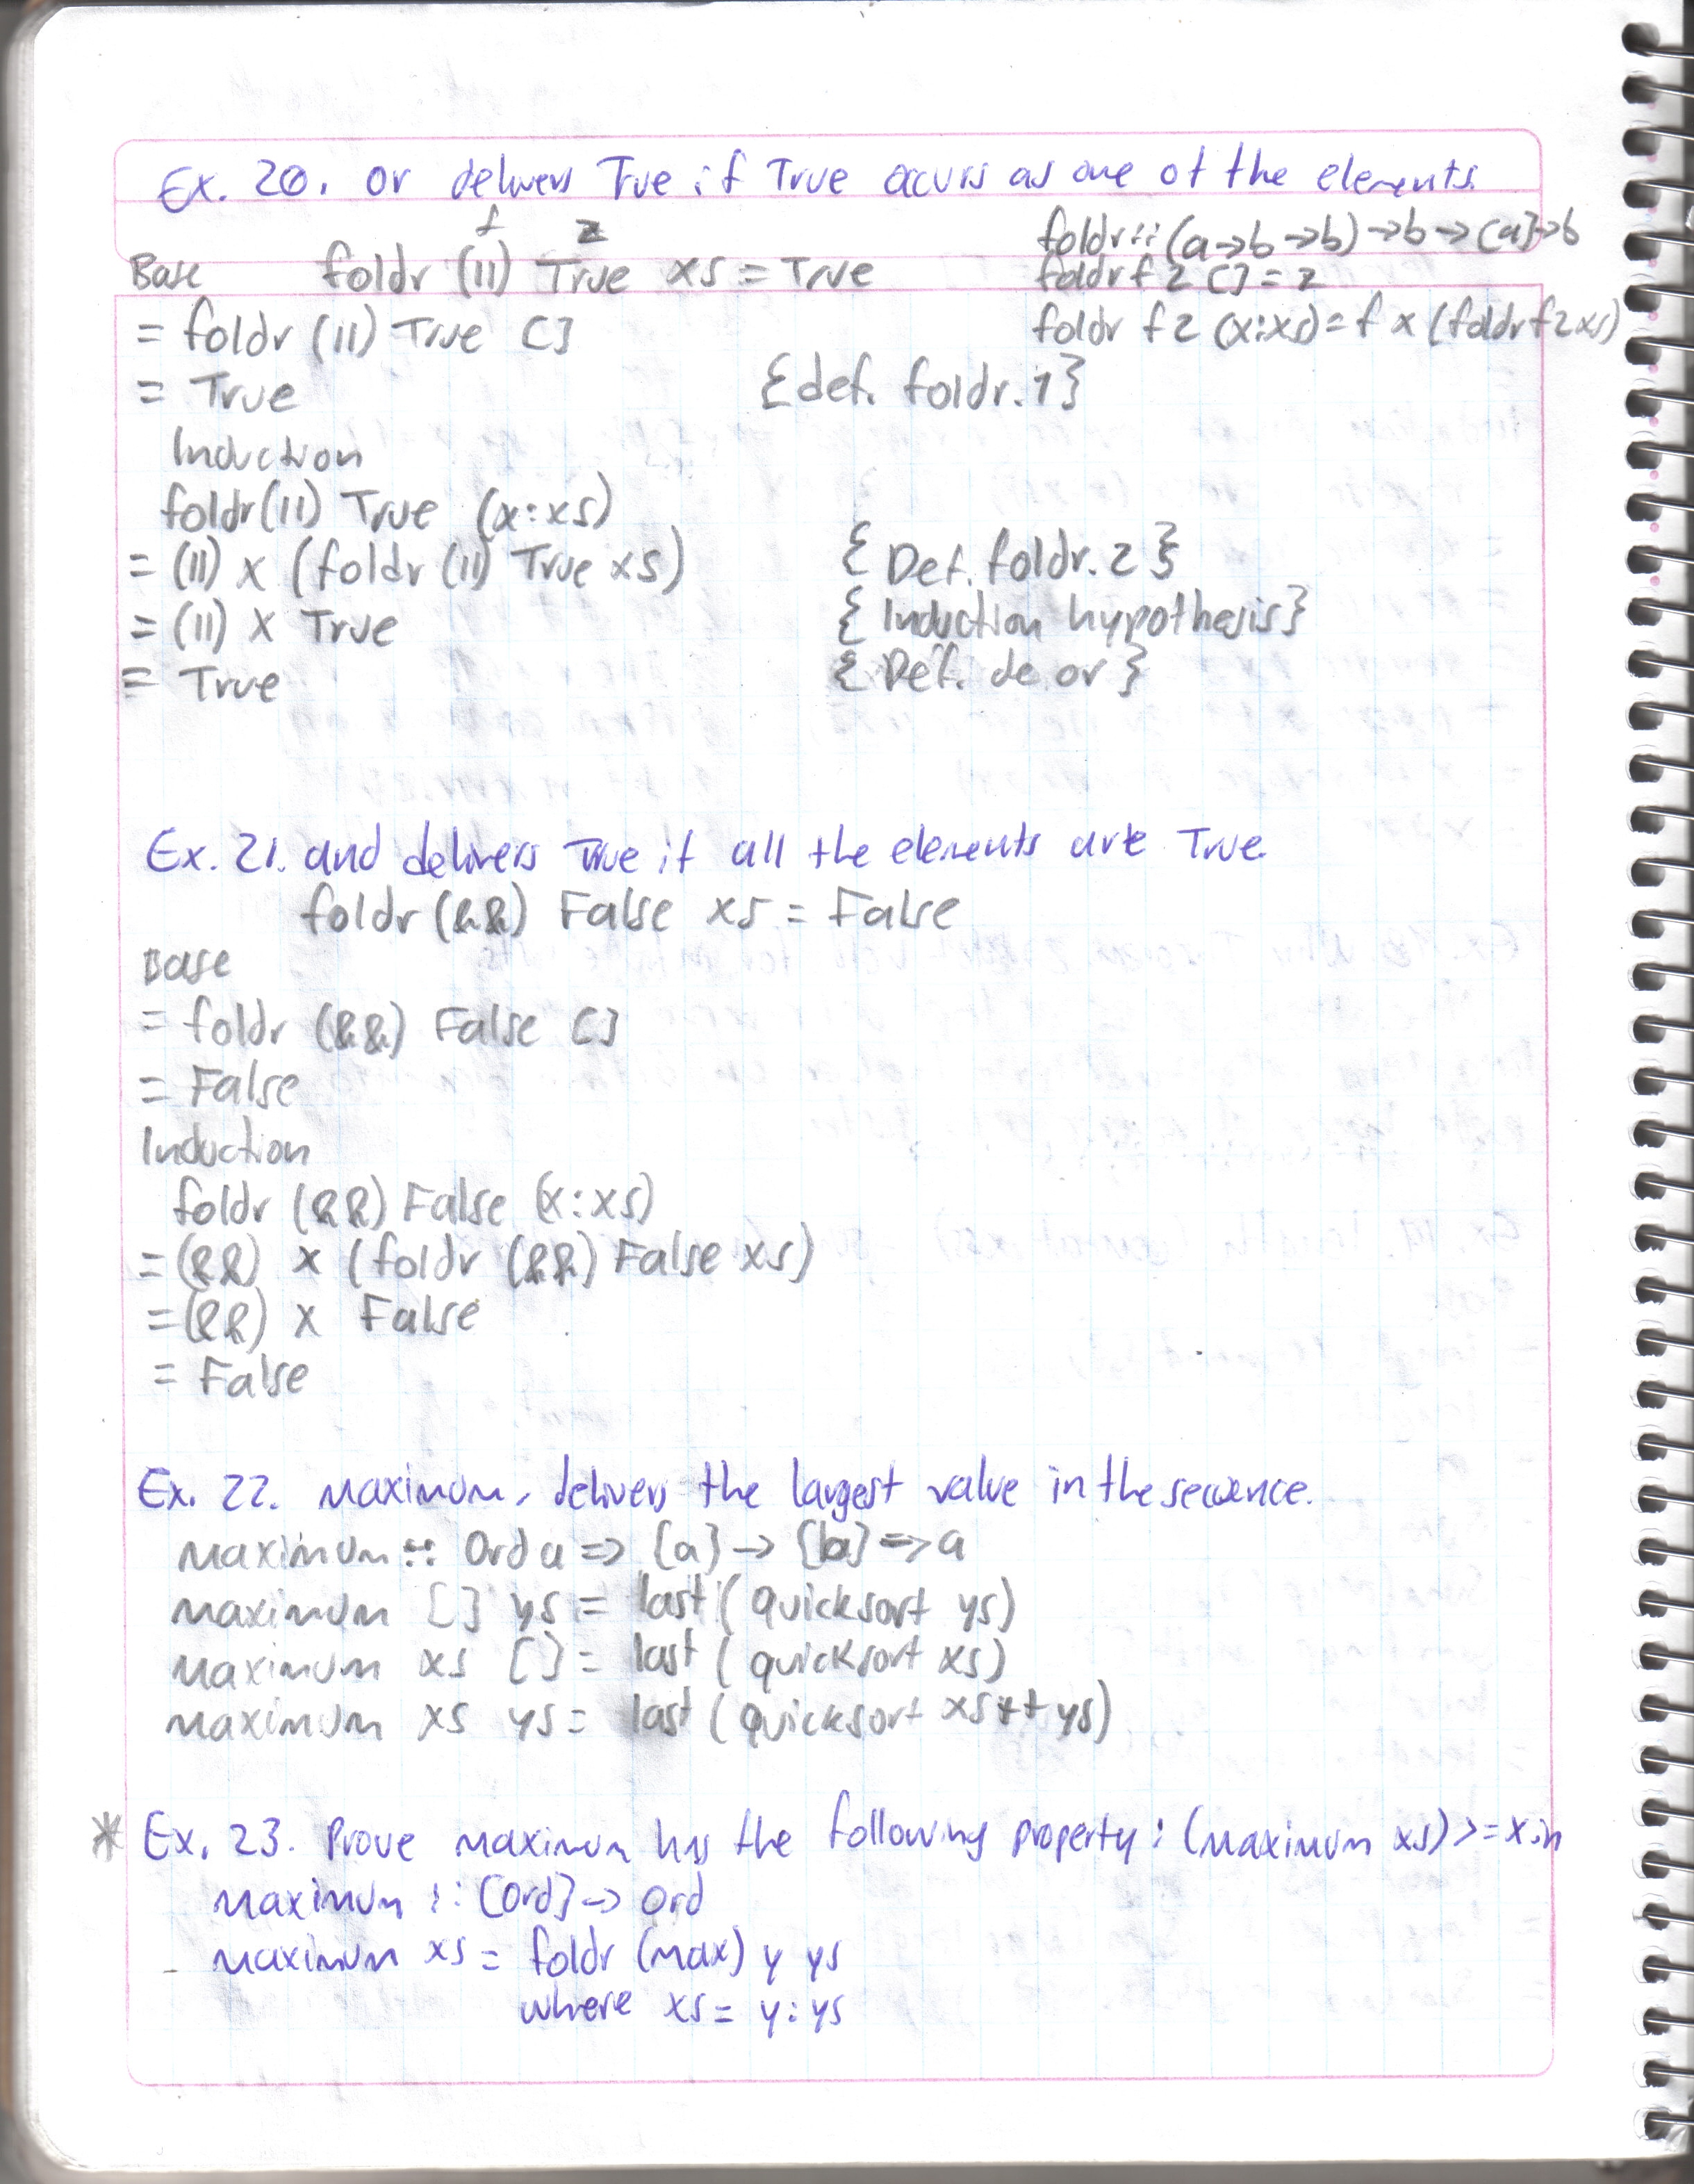 Ex. 20. or delivers True if True occurs as one of the elements.
f z
foldr :: (a->b->b)->b->[a]->b
Base foldr (||) True xs = True
foldr f z [] = z
= foldr (||) True []
foldr f z (x:xs) = f x (foldr f z xs)
= True {def. foldr.1}
Induction
foldr (||) True (x:xs)
= (||) x (foldr (||) True xs) {Def. foldr.2}
= (||) x True {Induction hypothesis}
= True {Def. de or}
Ex. 21. and delivers True if all the elements are True.
foldr (&&) False xs = False
Base
= foldr (&&) False []
= False
Induction
foldr (&&) False (x:xs)
= (&&) x (foldr (&&) False xs)
= (&&) x False
= False
Ex. 22. maximum, delivers the largest value in the secuence.
maximum :: Ord a => [a] -> [a] => a
maximum [] ys = last (quicksort ys)
maximum xs [] = last (quicksort xs)
maximum xs ys = last (quicksort xs ++ ys)
* Ex. 23. Prove maximum has the following property: (maximum xs) >= x in
maximum :: [Ord] -> Ord
maximum xs = foldr (max) y ys
where xs = y:ys